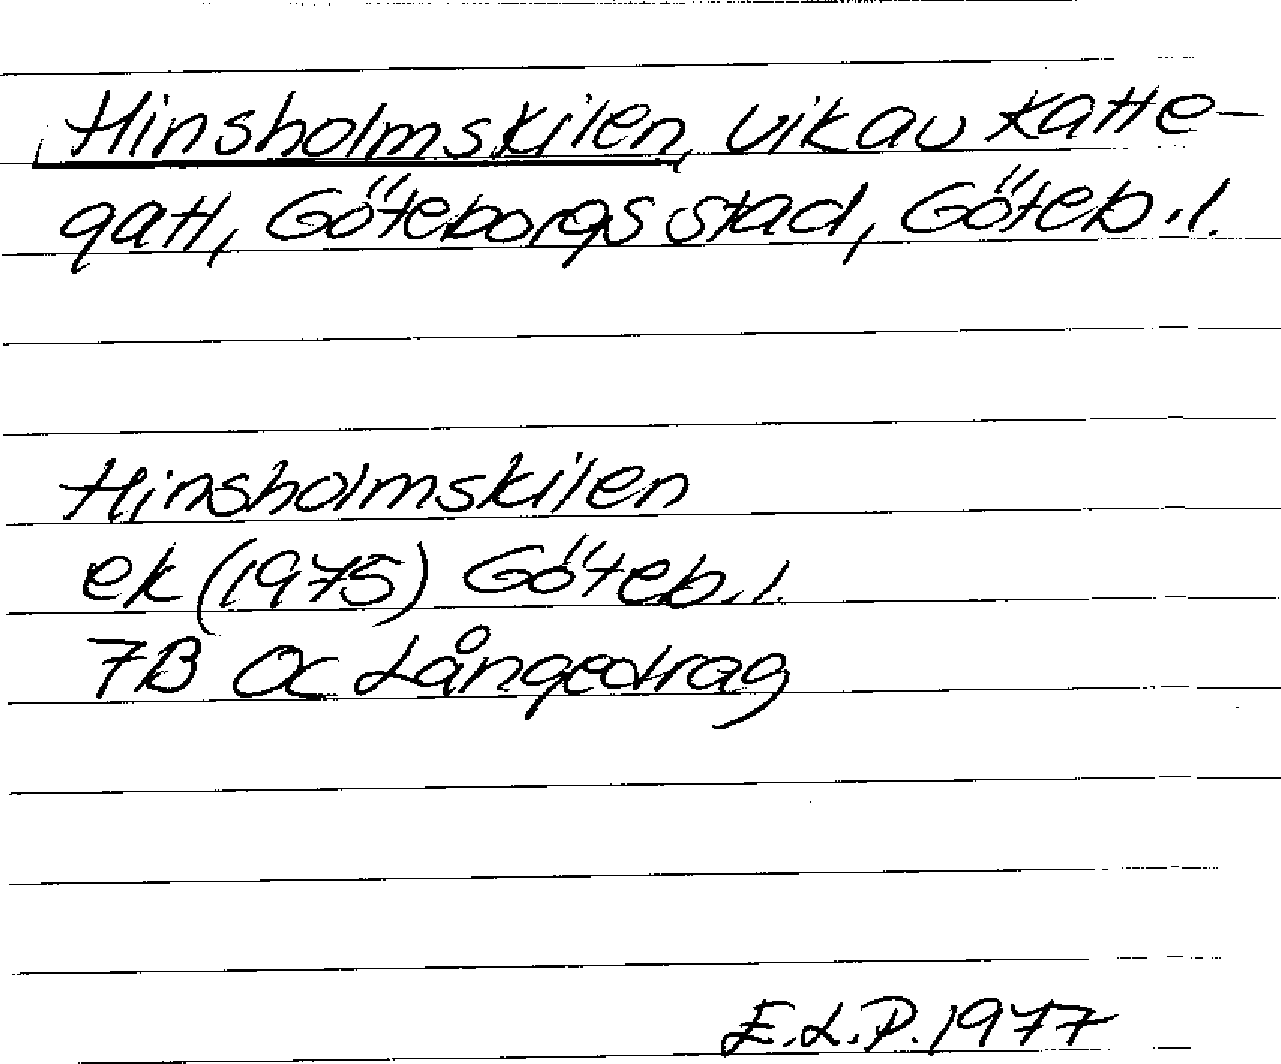 Hinsholmskilen, vik av Katte-
gatt, Göteborgs stad, Göteb.l.
Hinsholmskilen
ek (1975) Göteb.l.
7B 0c Långedrag
E.L.P. 1977